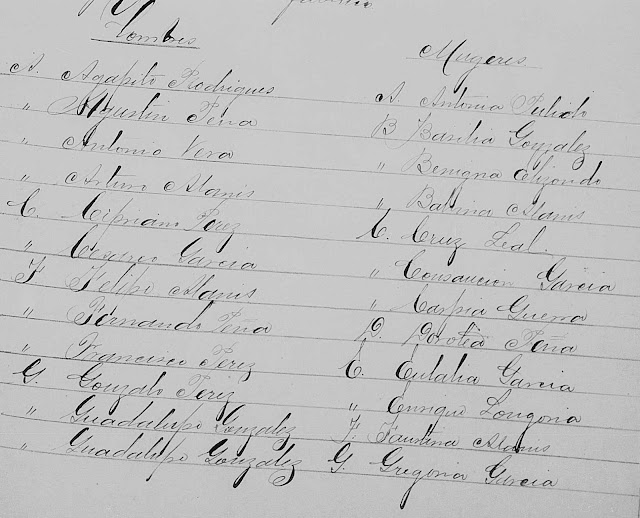 Hombres
A. Agapito Rodrigues
" Agustin Peña
" Antonio Vera
" Arturo Alanis
C. Cipriano Perez
" Cesareo Garcia
F Felipe Alanis
" Fernando Peña
" Francisco Perez
G. Gonzalo Perez
" Guadalupe Gonzalez
" Guadalupe Gonzalez
Mugeres
A. Antonia Pulido
B Basilia Gonzalez
" Benigna Elizondo
" Balbina Alanis
C. Cruz Leal.
" Garcia
" Guerra
D. Dorotea Peña
E. Eulalia Garcia
" Longoria
F. Faustina Alanis
G. Gregoria Garcia